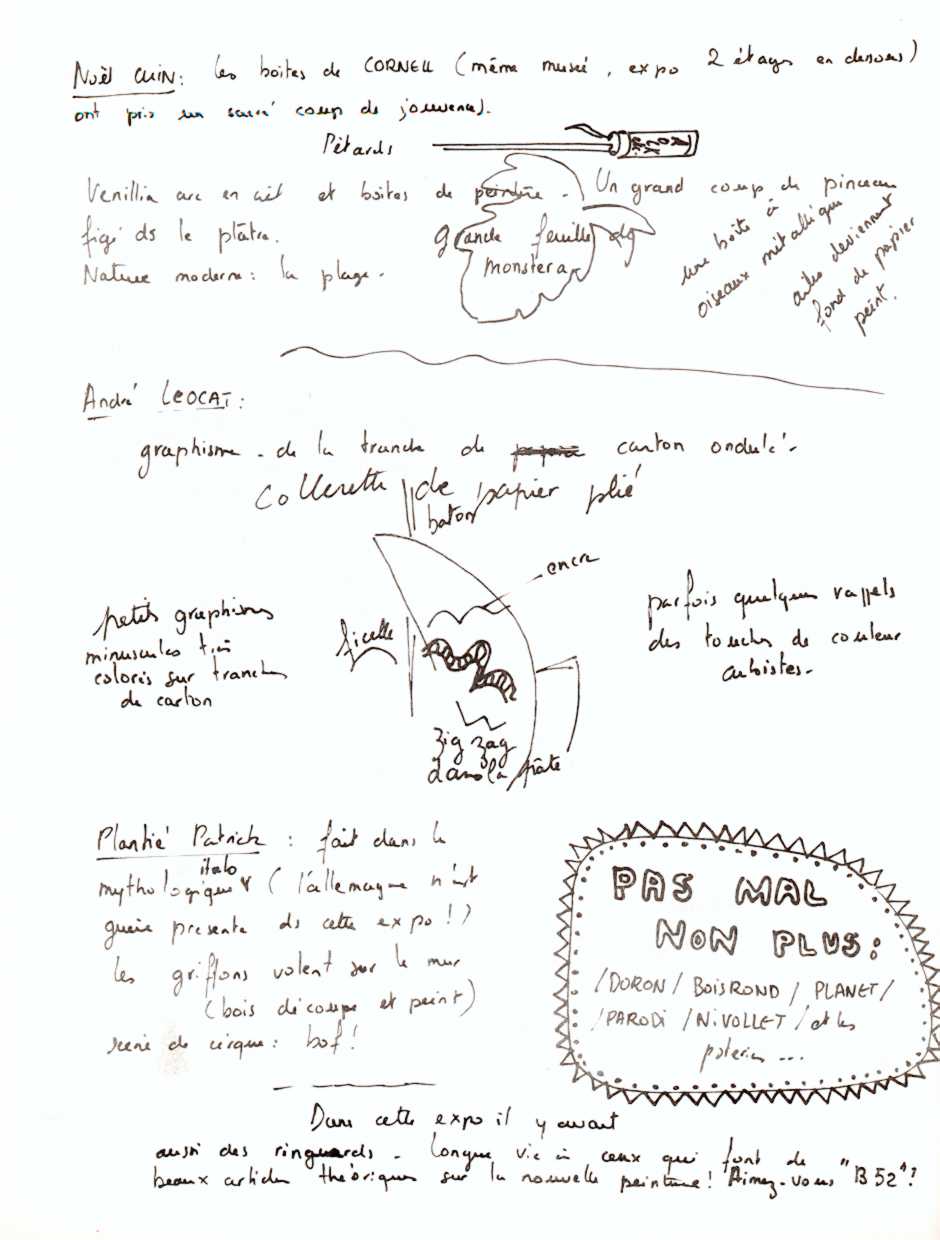 Noël CUIN: les boites de CORNELL (même musée, expo 2 étages en dessous)
ont pris un sacré coup de jouvence).
Pétards
Venillia arc en ciel et boites de peinture. Un grand coup de pinceau
figé ds le plâtre.
Nature moderne: la plage.
grande feuille de
monstera
une boite à
oiseaux métallique
ailes deviennent
fond de papier
peint.
André LEOCAT:
graphisme de la tranche de carton ondulé.
Collerette de papier plié
baton
encre
petits graphismes
minuscules très
colorés sur tranches
de carton
ficelle
parfois quelques rappels
des touches de couleur
cubistes.
zig zag
dans la pâte
Plantié Patrick : fait dans le
italo
mythologique (l'allemagne n'est
guère presente ds cette expo!)
les griffons volent sur le mur
(bois découpe et peint)
scene de cirque: bof!
PAS MAL
NON PLUS:
/DORON/ BOISROND / PLANET/
/PARODI /NIVOLLET / et les
poteries ...
Dans cette expo il y avait
aussi des ringuards. Longue vie à ceux qui font de
beaux articles théoriques sur la nouvelle peinture! Aimez-vous "B 52"?